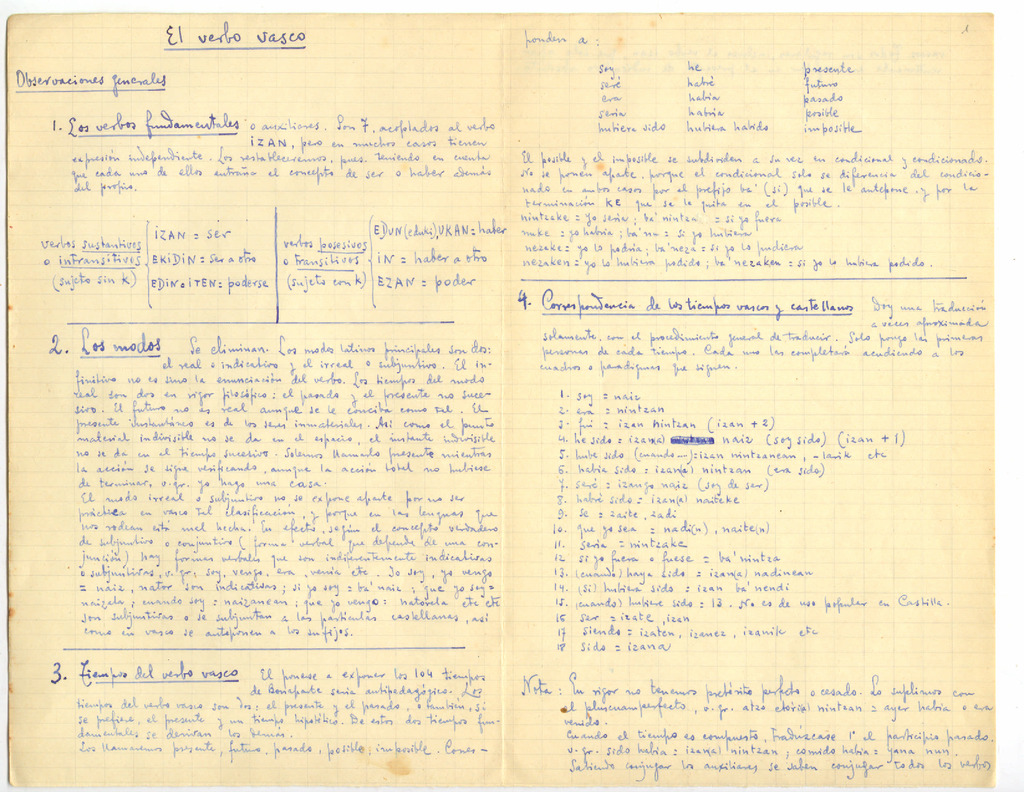 El verbo vasco
Observaciones generales
1. Los verbos fundamentales o auxiliares. Son 7, acoplados al verbo
IZAN, pero en muchos casos tienen
expresión independiente. Los restableceremos, pues, teniendo en cuenta
que cada uno de ellos entraña el concepto de ser o haber además
del propio.
verbos sustantivos
o intransitivos
(sujeto sin k)
IZAN = ser
EKIDIN = ser a otro
EDIN = ITEN = poderse
verbos posesivos
o transitivos
(sujeto con k)
EDUN (eduki) UKAN = haber
IN = haber a otro
EZAN = poder
2. Los modos Se eliminan. Los modos latinos principales son dos:
el real o indicativo y el irreal o subjuntivo. El in-
finitivo no es sino la enunciación del verbo. Los tiempos del modo
real son dos en rigor filosófico: el pasado y el presente no suce-
sivo. El futuro no es real aunque se le conciba como tal. El
presente instantáneo es de los seres inmateriales. Así como el punto
material indivisible no se da en el espacio, el instante indivisible
no se da en el tiempo sucesivo. Solemos llamarlo presente mientras
la acción se sigue verificando, aunque la acción total no hubiese
de terminar, v.gr. yo hago una casa.
El modo irreal o subjuntivo no se expone aparte por no ser
práctica en vasco tal clasificación, y porque en las lenguas que
nos rodean está mal hecha. En efecto, según el concepto verdadero
de subjuntivo o conjuntivo (forma verbal que depende de una con-
junción) hay formas verbales que son indiferentemente indicativas
o subjuntivas, v.gr. soy, vengo, era, venía etc. Yo soy, yo vengo
= naiz, nator son indicativas; si yo soy = ba'naiz; que yo soy =
naizela; cuando soy = naizanean; que yo vengo: natorela etc etc
son subjuntivas o se subjuntan a las partículas castellanas, así
como en vasco se anteponen a los sufijos.
3. Tiempos del verbo vasco El ponerse a exponer los 104 tiempos
de Bonaparte sería antipedagógico. Los
tiempos del verbo vasco son dos: el presente y el pasado, o también, si
se prefiere, el presente y un tiempo hipotético. De estos dos tiempos fun-
damentales se derivan los demás.
Los llamaremos presente, futuro, pasado, posible, imposible. Corres-
1
ponden a:
soy he presente
seré habré futuro
era había pasado
sería habría posible
hubiera sido hubiera habido imposible
El posible y el imposible se subdividen a su vez en condicional y condicionado.
No se ponen aparte, porque el condicional solo se diferencia del condicio-
nado en ambos casos por el prefijo ba' (si) que se le antepone, y por la
terminación KE que se le quita en el posible.
nintzake = yo sería; ba'nintza = si yo fuera
nuke = yo habría; ba'nu = si yo hubiera
nezake = yo lo podría; ba'neza = si yo lo pudiera
nezaken = yo lo hubiera podido; ba'nezaken = si yo lo hubiera podido.
4. Correspondencia de los tiempos vascos y castellanos Doy una traducción
a veces aproximada
solamente, con el procedimiento general de traducir. Solo pongo las primeras
personas de cada tiempo. Cada uno las completará acudiendo a los
cuadros o paradigmas que siguen.
1. soy = naiz
2. era = nintzan
3. fuí = izan nintzan (izan + 2)
4. he sido = izan(a) naiz (soy sido) (izan + 1)
5. hube sido (cuando...) = izan nintzanean, -larik etc
6. había sido = izan(a) nintzan (era sido)
7. seré = izango naiz (soy de ser)
8. habré sido = izan(a) naiteke
9. sé = zaite, zadi
10. que yo sea = nadi(n), naite(n)
11. sería = nintzake
12 si yo fuera o fuese = ba'nintza
13. (cuando) haya sido = izan(a) nadinean
14. (si) hubiera sido = izan ba'nendi
15. (cuando) hubiere sido = 13. No es de uso popular en Castilla.
16 ser = izate, izan
17 siendo = izaten, izanez, izanik etc
18 sido = izana
Nota: En rigor no tenemos pretérito perfecto o cesado. Lo suplimos con
el pluscuamperfecto, v.gr. atzo etorri(a) nintzan = ayer había o era
venido.
Cuando el tiempo es compuesto, tradúzcase 1º el participio pasado.
v.gr. sido había = izan(a) nintzan; comido había = yana nun.
Sabiendo conjugar los auxiliares se saben conjugar todos los verbos